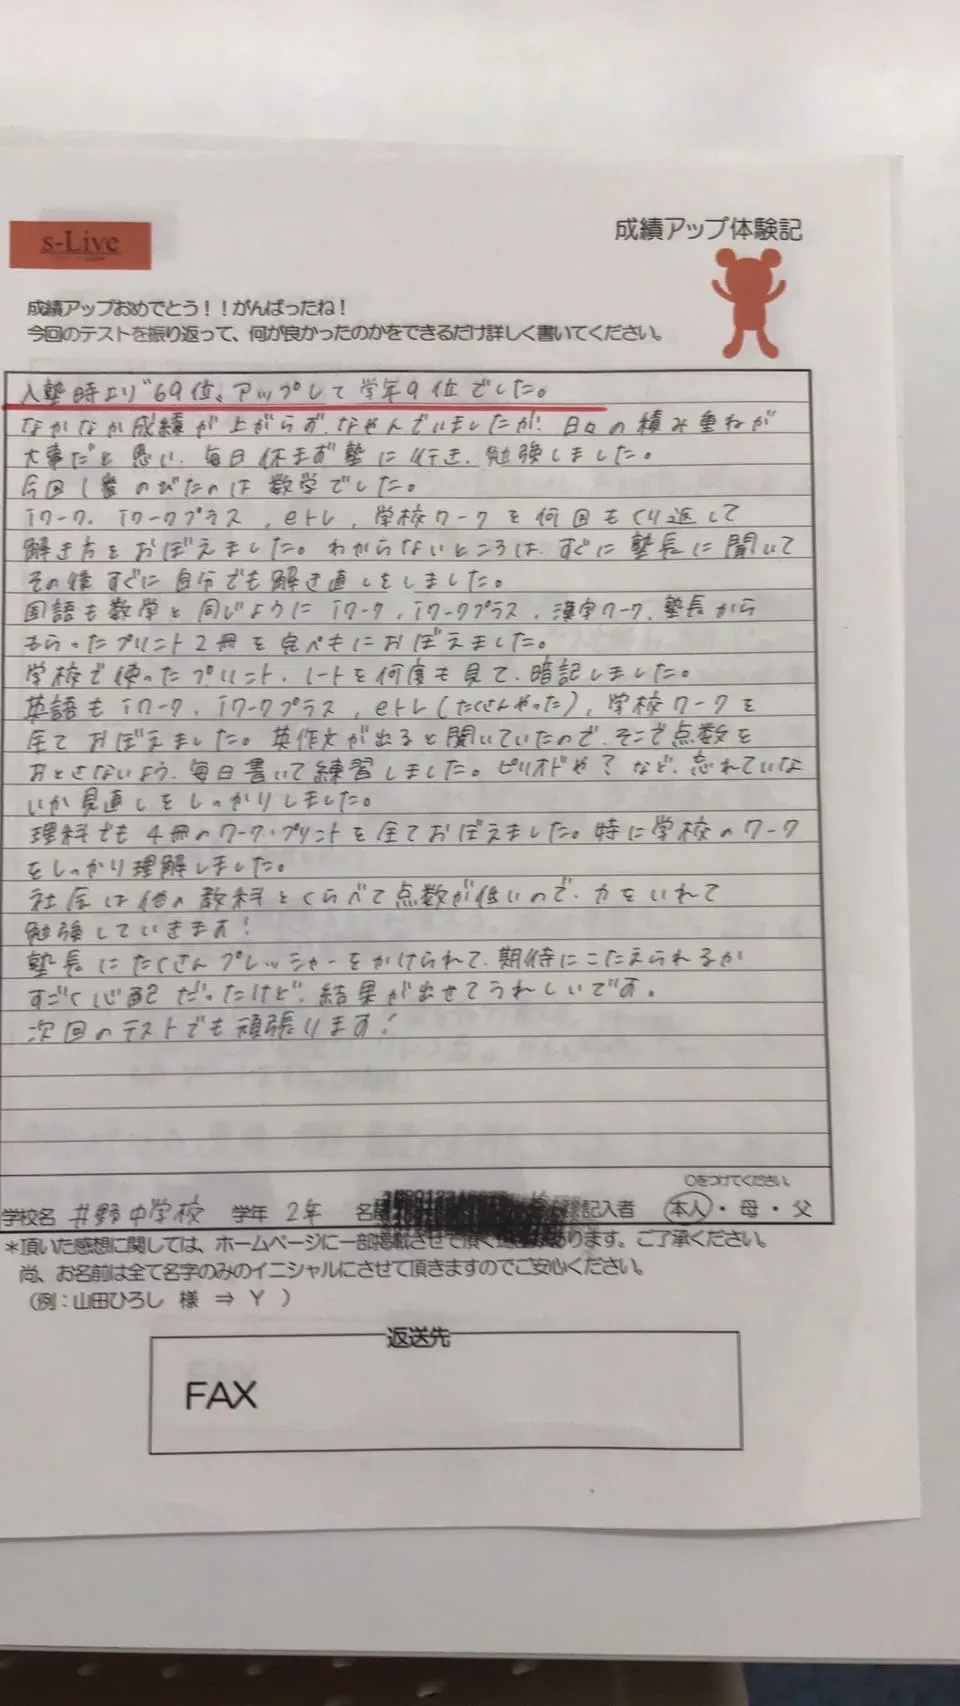 s-Live
成績アップ体験記
成績アップおめでとう！！がんばったね！
今回のテストを振り返って、何が良かったのかをできるだけ詳しく書いてください。
入塾時より69位、アップして学年9位でした。
なかなか成績が上がらず、なやんでいましたが、日々の積み重ねが
大事だと思い、毎日休まず塾に行き、勉強しました。
今回1番のびたのは数学でした。
iワーク、iワークプラス、eトレ、学校ワークを何回もくり返して
解き方をおぼえました。わからないところは、すぐに塾長に聞いて
その後すぐに自分でも解き直しをしました。
国語も数学と同じようにiワーク、iワークプラス、漢字ワーク、塾長から
もらったプリント2冊を食べもにおぼえました。
学校で使ったプリント、ノートを何度も見て、暗記しました。
英語もiワーク、iワークプラス、eトレ(たくさんやった)、学校ワークを
全ておぼえました。英作文が出ると聞いていたので、そこで点数を
おとさないよう、毎日書いて練習しました。ピリオドや?など、忘れていな
いか見直しをしっかりしました。
理科でも4冊のワーク・プリントを全ておぼえました。特に学校のワーク
をしっかり理解しました。
社会は他の教科とくらべて点数が低いので、力をいれて
勉強していきます!
塾長にたくさんプレッシャーをかけられて、期待にこたえられるか
すごく心配だったけど、結果が出せてうれしいです。
次回のテストでも頑張ります!
○をつけてください。
学校名 井野中学校 学年 2年 名 記入者 本人・母・父
＊頂いた感想に関しては、ホームページに一部掲載させて頂く あります。ご了承ください。
尚、お名前は全て名字のみのイニシャルにさせて頂きますのでご安心ください。
（例：山田ひろし 様 ⇒ Y ）
返送先
FAX